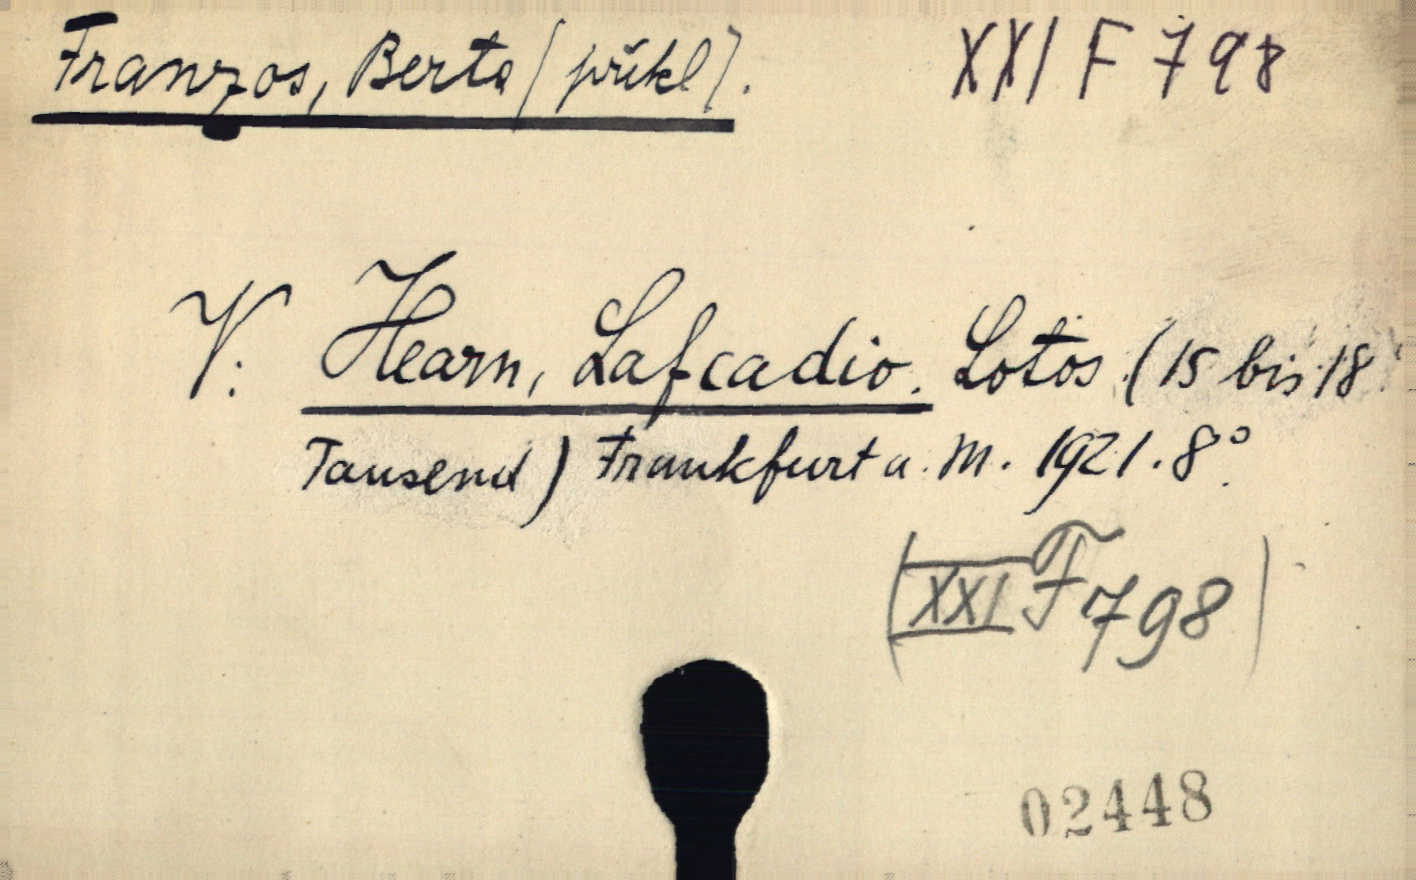 Franzos, Berta (překl). XXI F 798
V. Hearn, Lafcadio. Lotos. (15 bis 18.
Tausend) Frankfurt a. M. 1921. 8°.
(XXI F 798)
02448